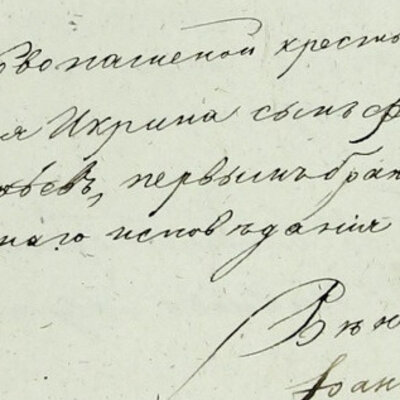 вопашеной кресть
я Икрина сынъ Ф
ьевъ, первымъ брак
наго исповѣданія
Вѣн
Іоан